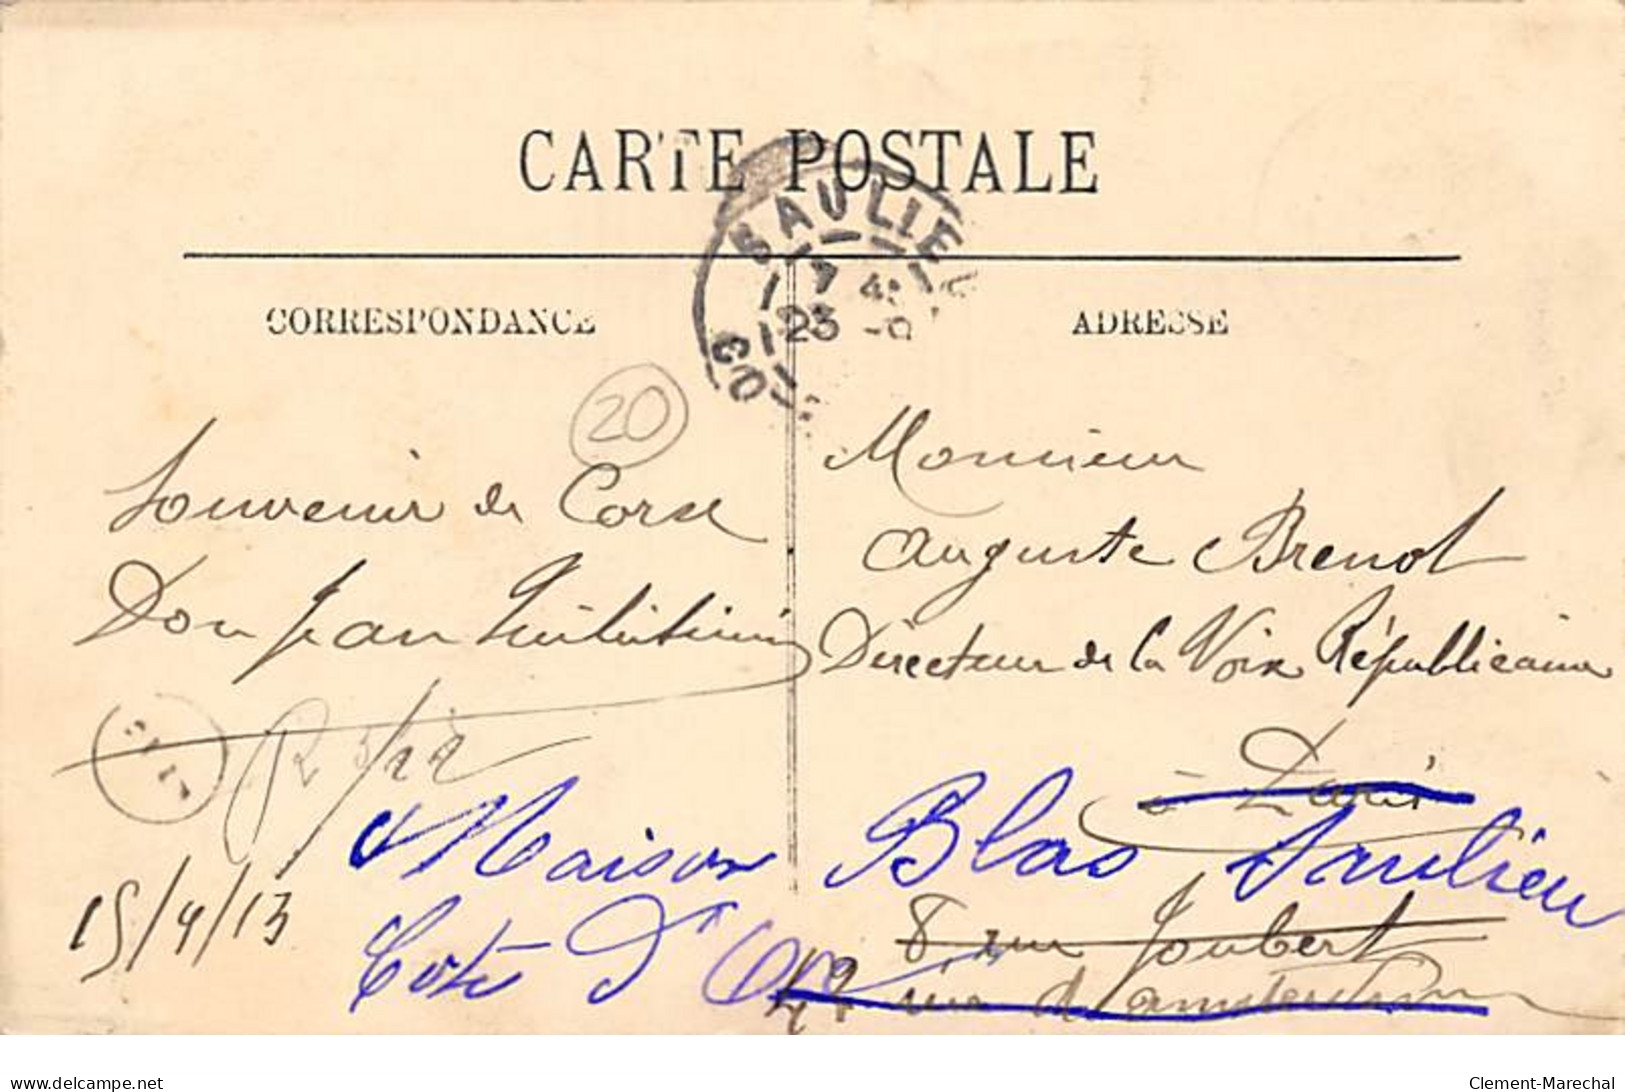 CARTE POSTALE
SAULIEU
7 4
23
CO
CORRESPONDANCE
ADRESSE
20
Souvenir de Corse
Don Jean
15/4/13
Monsieur
Auguste Brenot
Directeur de la Voix Républicaine
à Paris
Maison Blas Saulieu
Cote d'Or
8 rue Joubert
42 rue d'Amsterdam
www.delcampe.net
Clement-Marechal